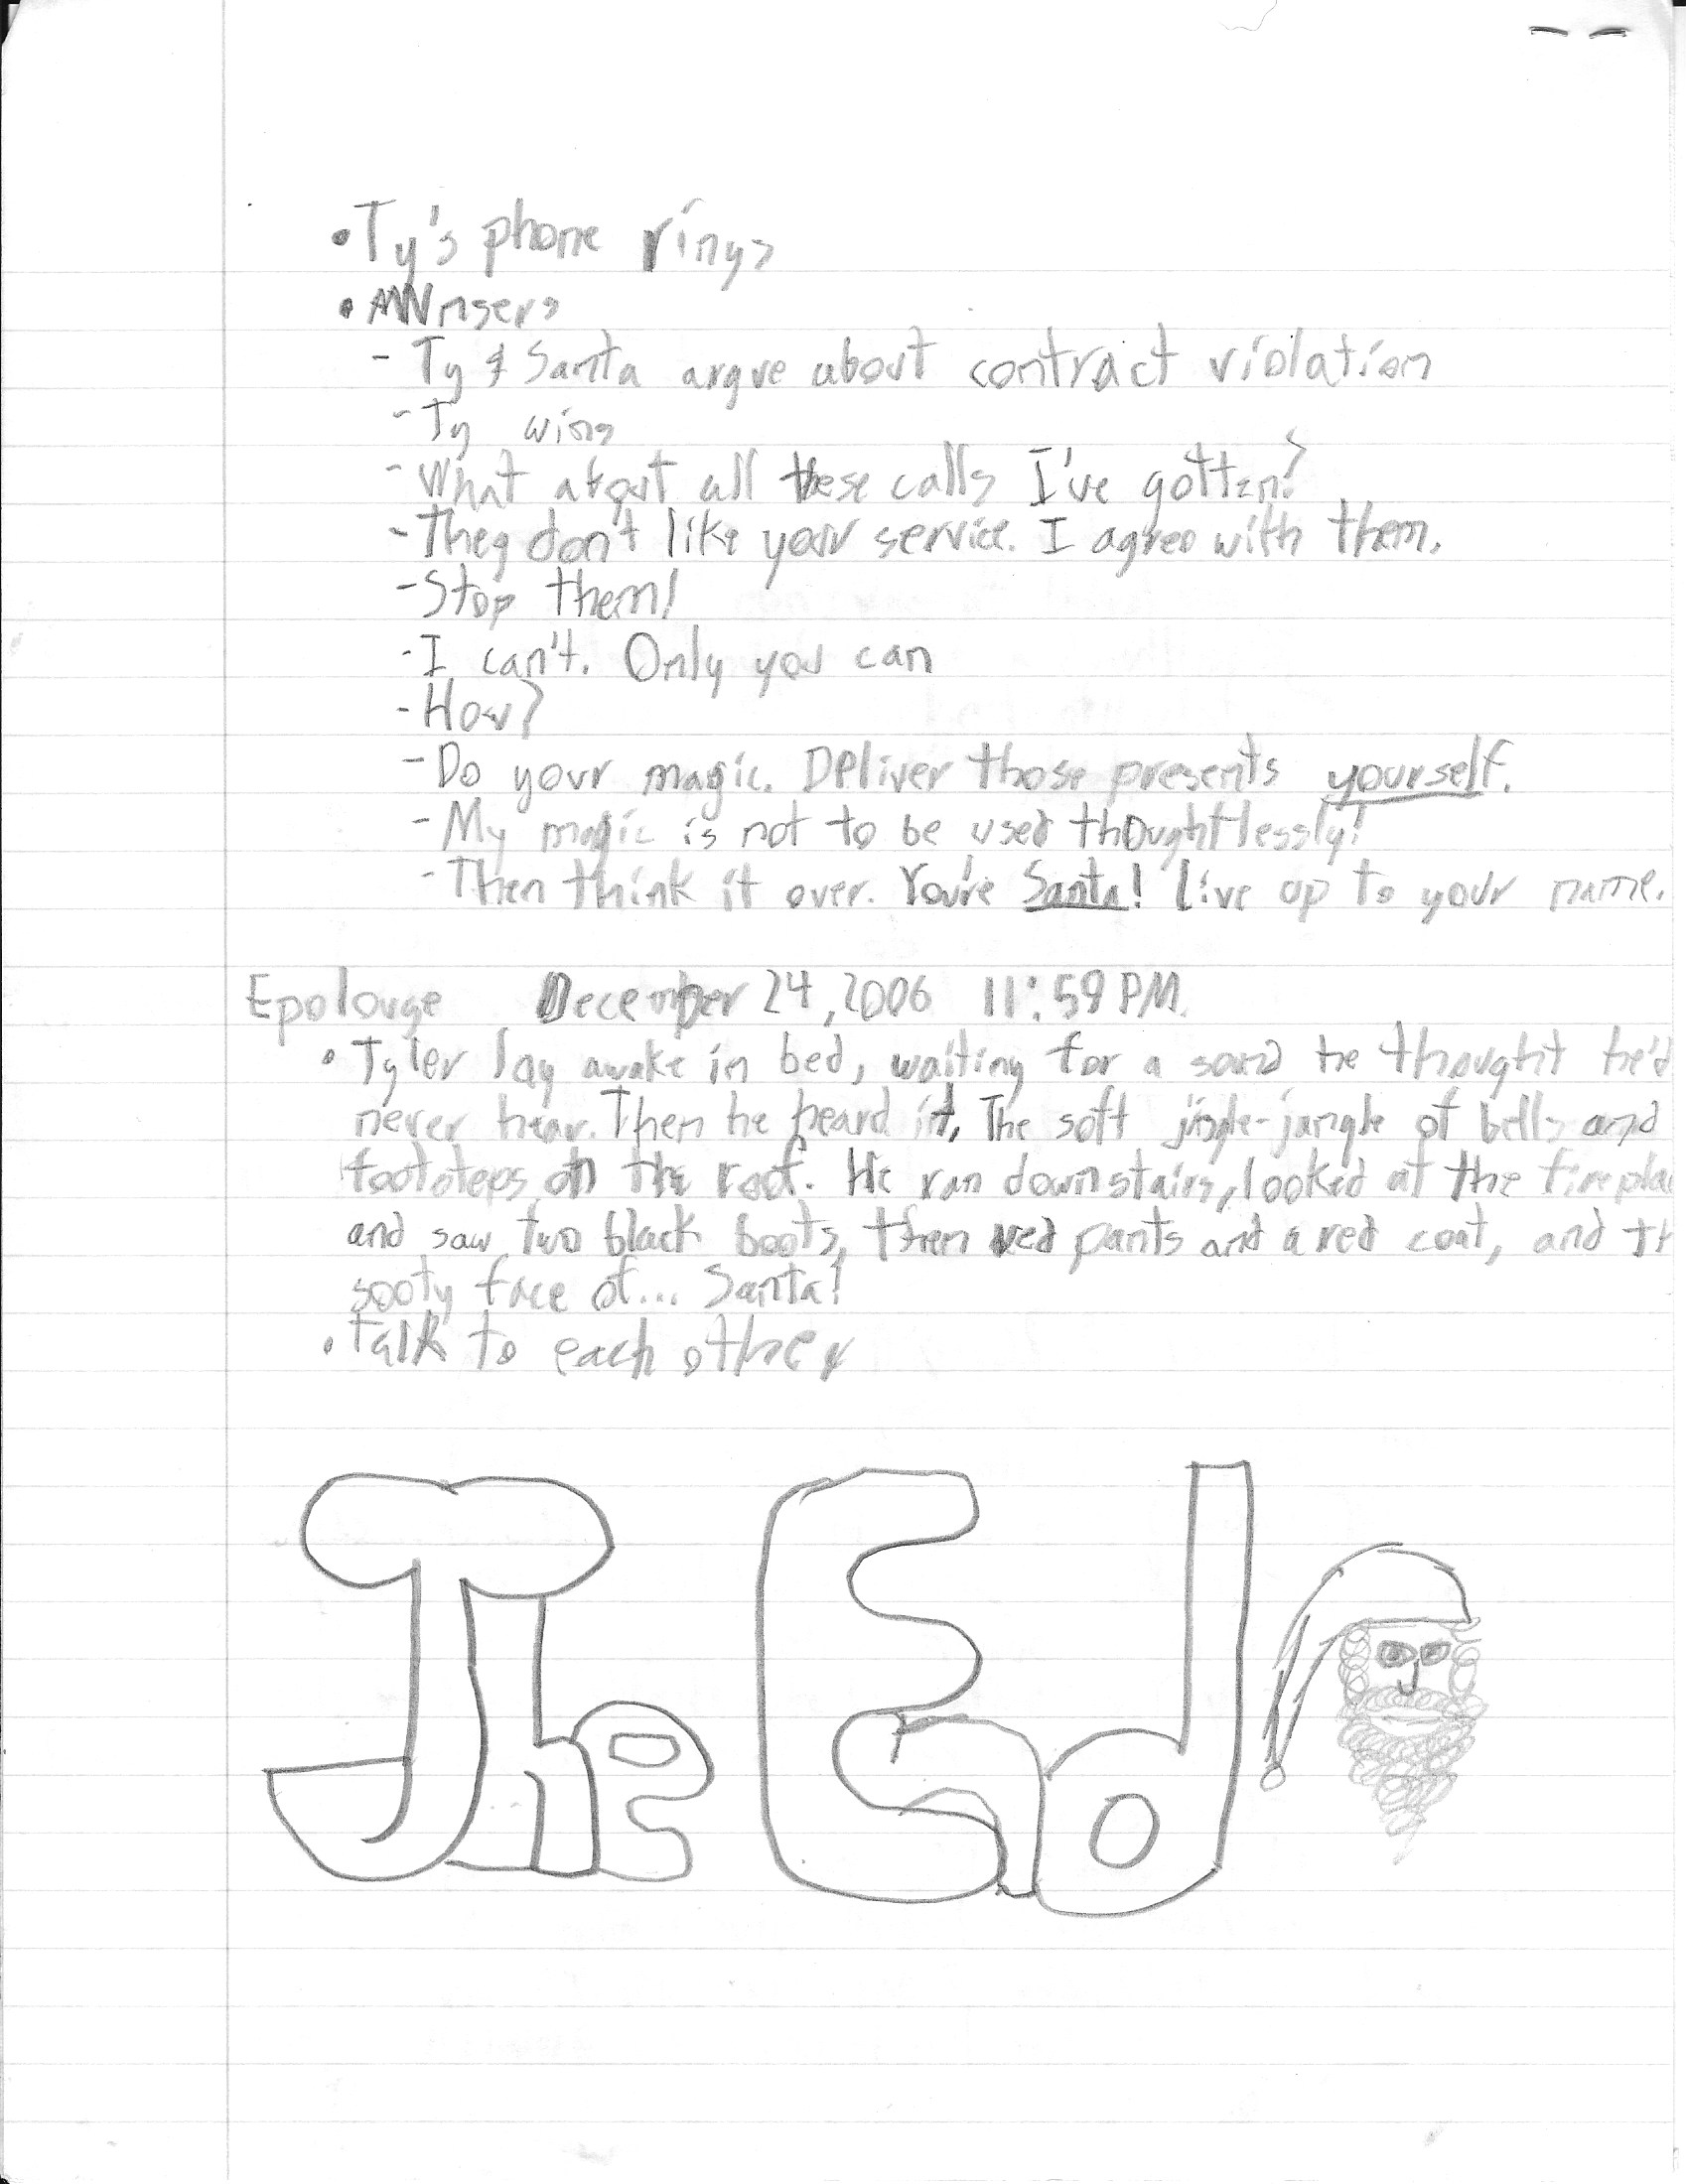 • Ty's phone rings
• AWnsers
- Ty & Santa argue about contract violation
- Ty wins
- What about all these calls I've gotten?
- They don't like your service. I agree with them.
- Stop them!
- I can't. Only you can
- How?
- Do your magic. Deliver those presents yourself.
- My magic is not to be used thoughtlessly!
- Then think it over. You're Santa! Live up to your name.
Epolouge December 24, 2006 11:59 PM.
• Tyler lay awake in bed, waiting for a sound he thought he'd
never hear. Then he heard it. The soft jingle-jangle of bells and
footsteps on the roof. He ran downstairs, looked at the firepla
and saw two black boots, then red pants and a red coat, and th
sooty face of... Santa!
• Talk to each other
The End